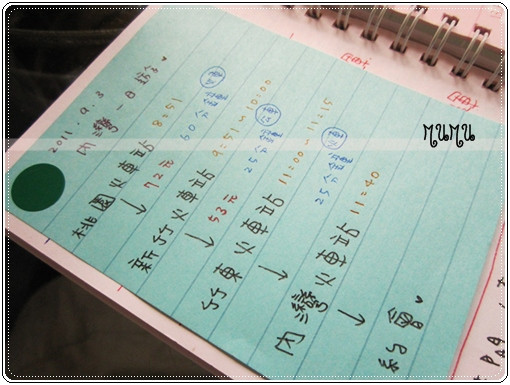 2011.9.3
內灣一日
桃園火車站 8:51
↓ 72元 60分
新竹火車站 9:51~10:00
↓ 53元 25分
竹東火車站 11:00~11:15
↓ 25分
內灣火車站 11:40
↓
約會
MUMU